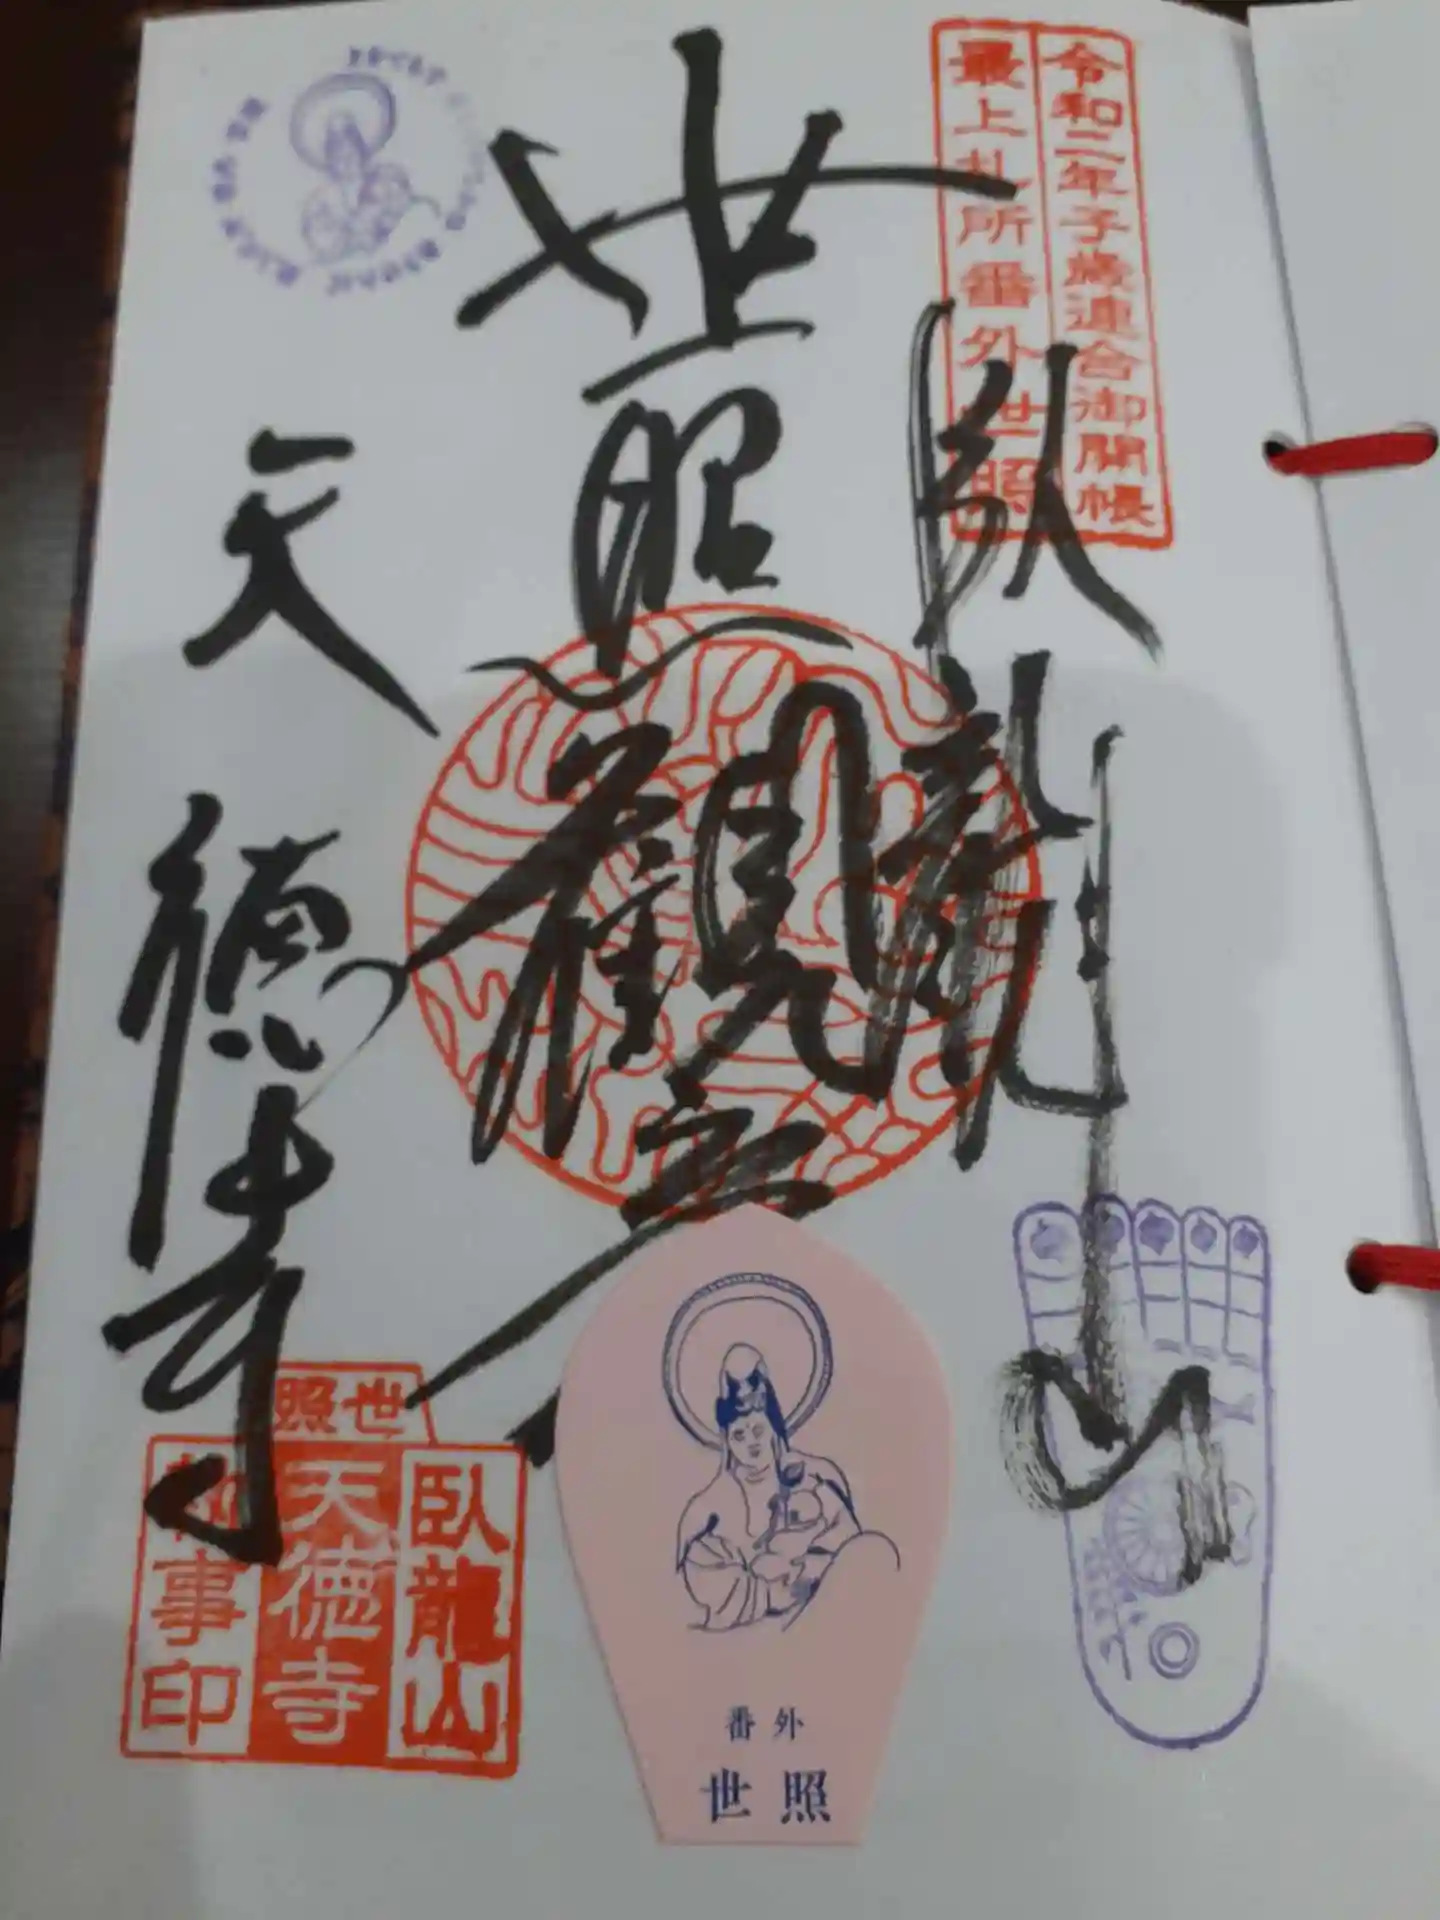 令和二年子歳連合御開帳
最上札所番外世照
臥龍山
世照観音
天徳寺
世照
臥龍山
天徳寺
執事印
番外
世照